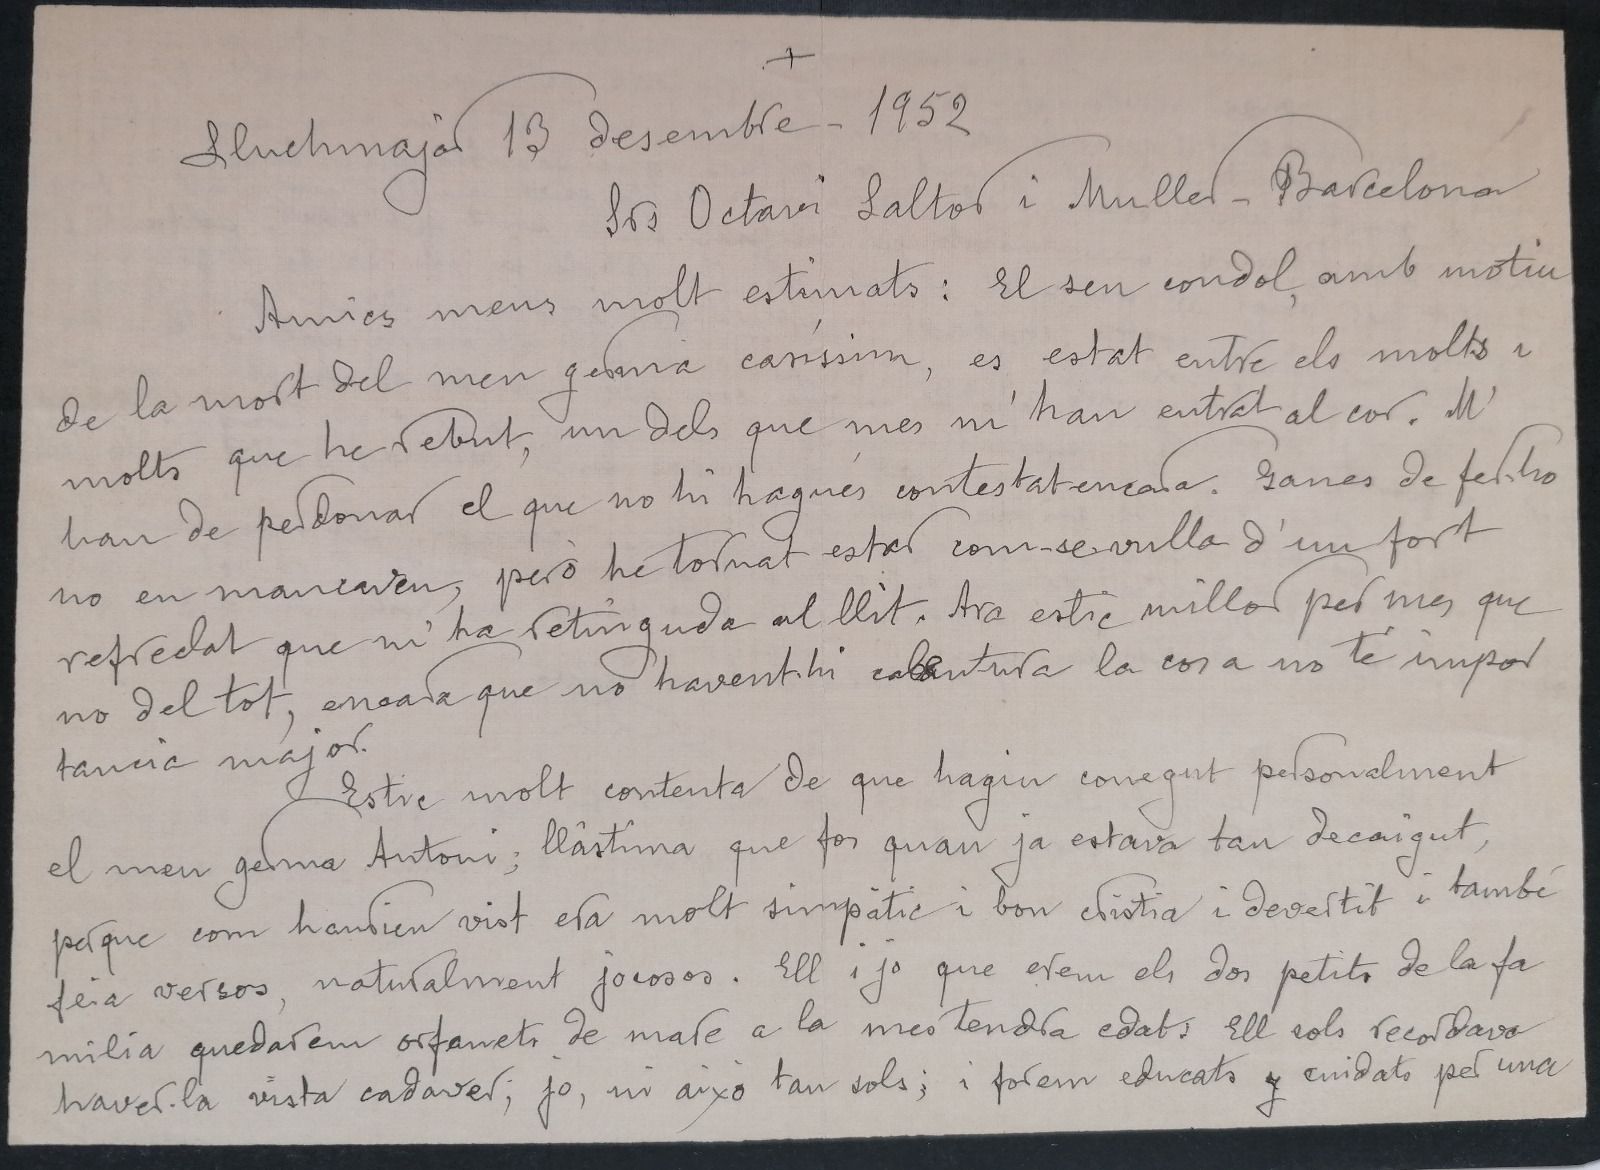 +
Lluchmajor 13 desembre - 1952
Srs Octavi Saltor i Muller - Barcelona
Amics meus molt estimats: El seu condol, amb motiu
de la mort del meu germá caríssim, es estat entre els molts i
molts que he rebut, un dels que mes m'han entrat al cor. M'
han de perdonar el que no hi hagués contestat encara. Ganes de fer-ho
no en mancaven, però he tornat estar com-se-vulla d'un fort
refredat que m'ha retinguda al llit. Ara estic millor per mes que
no del tot, encara que no havent-hi calentura la cosa no té impor
tancia major.
Estic molt contenta de que hagin conegut personalment
el meu germa Antoni; llástima que fos quan ja estava tan decaigut,
perque com haurien vist era molt simpátic i bon cristia i devertit i també
feia versos, naturalment jocosos. Ell i jo que erem els dos petits de la fa
milia quedarem orfanets de mare a la mes tendra edat: Ell sols recordava
haver-la vista cadaver; jo, ni aixó tan sols; i forem educats y cuidats per una